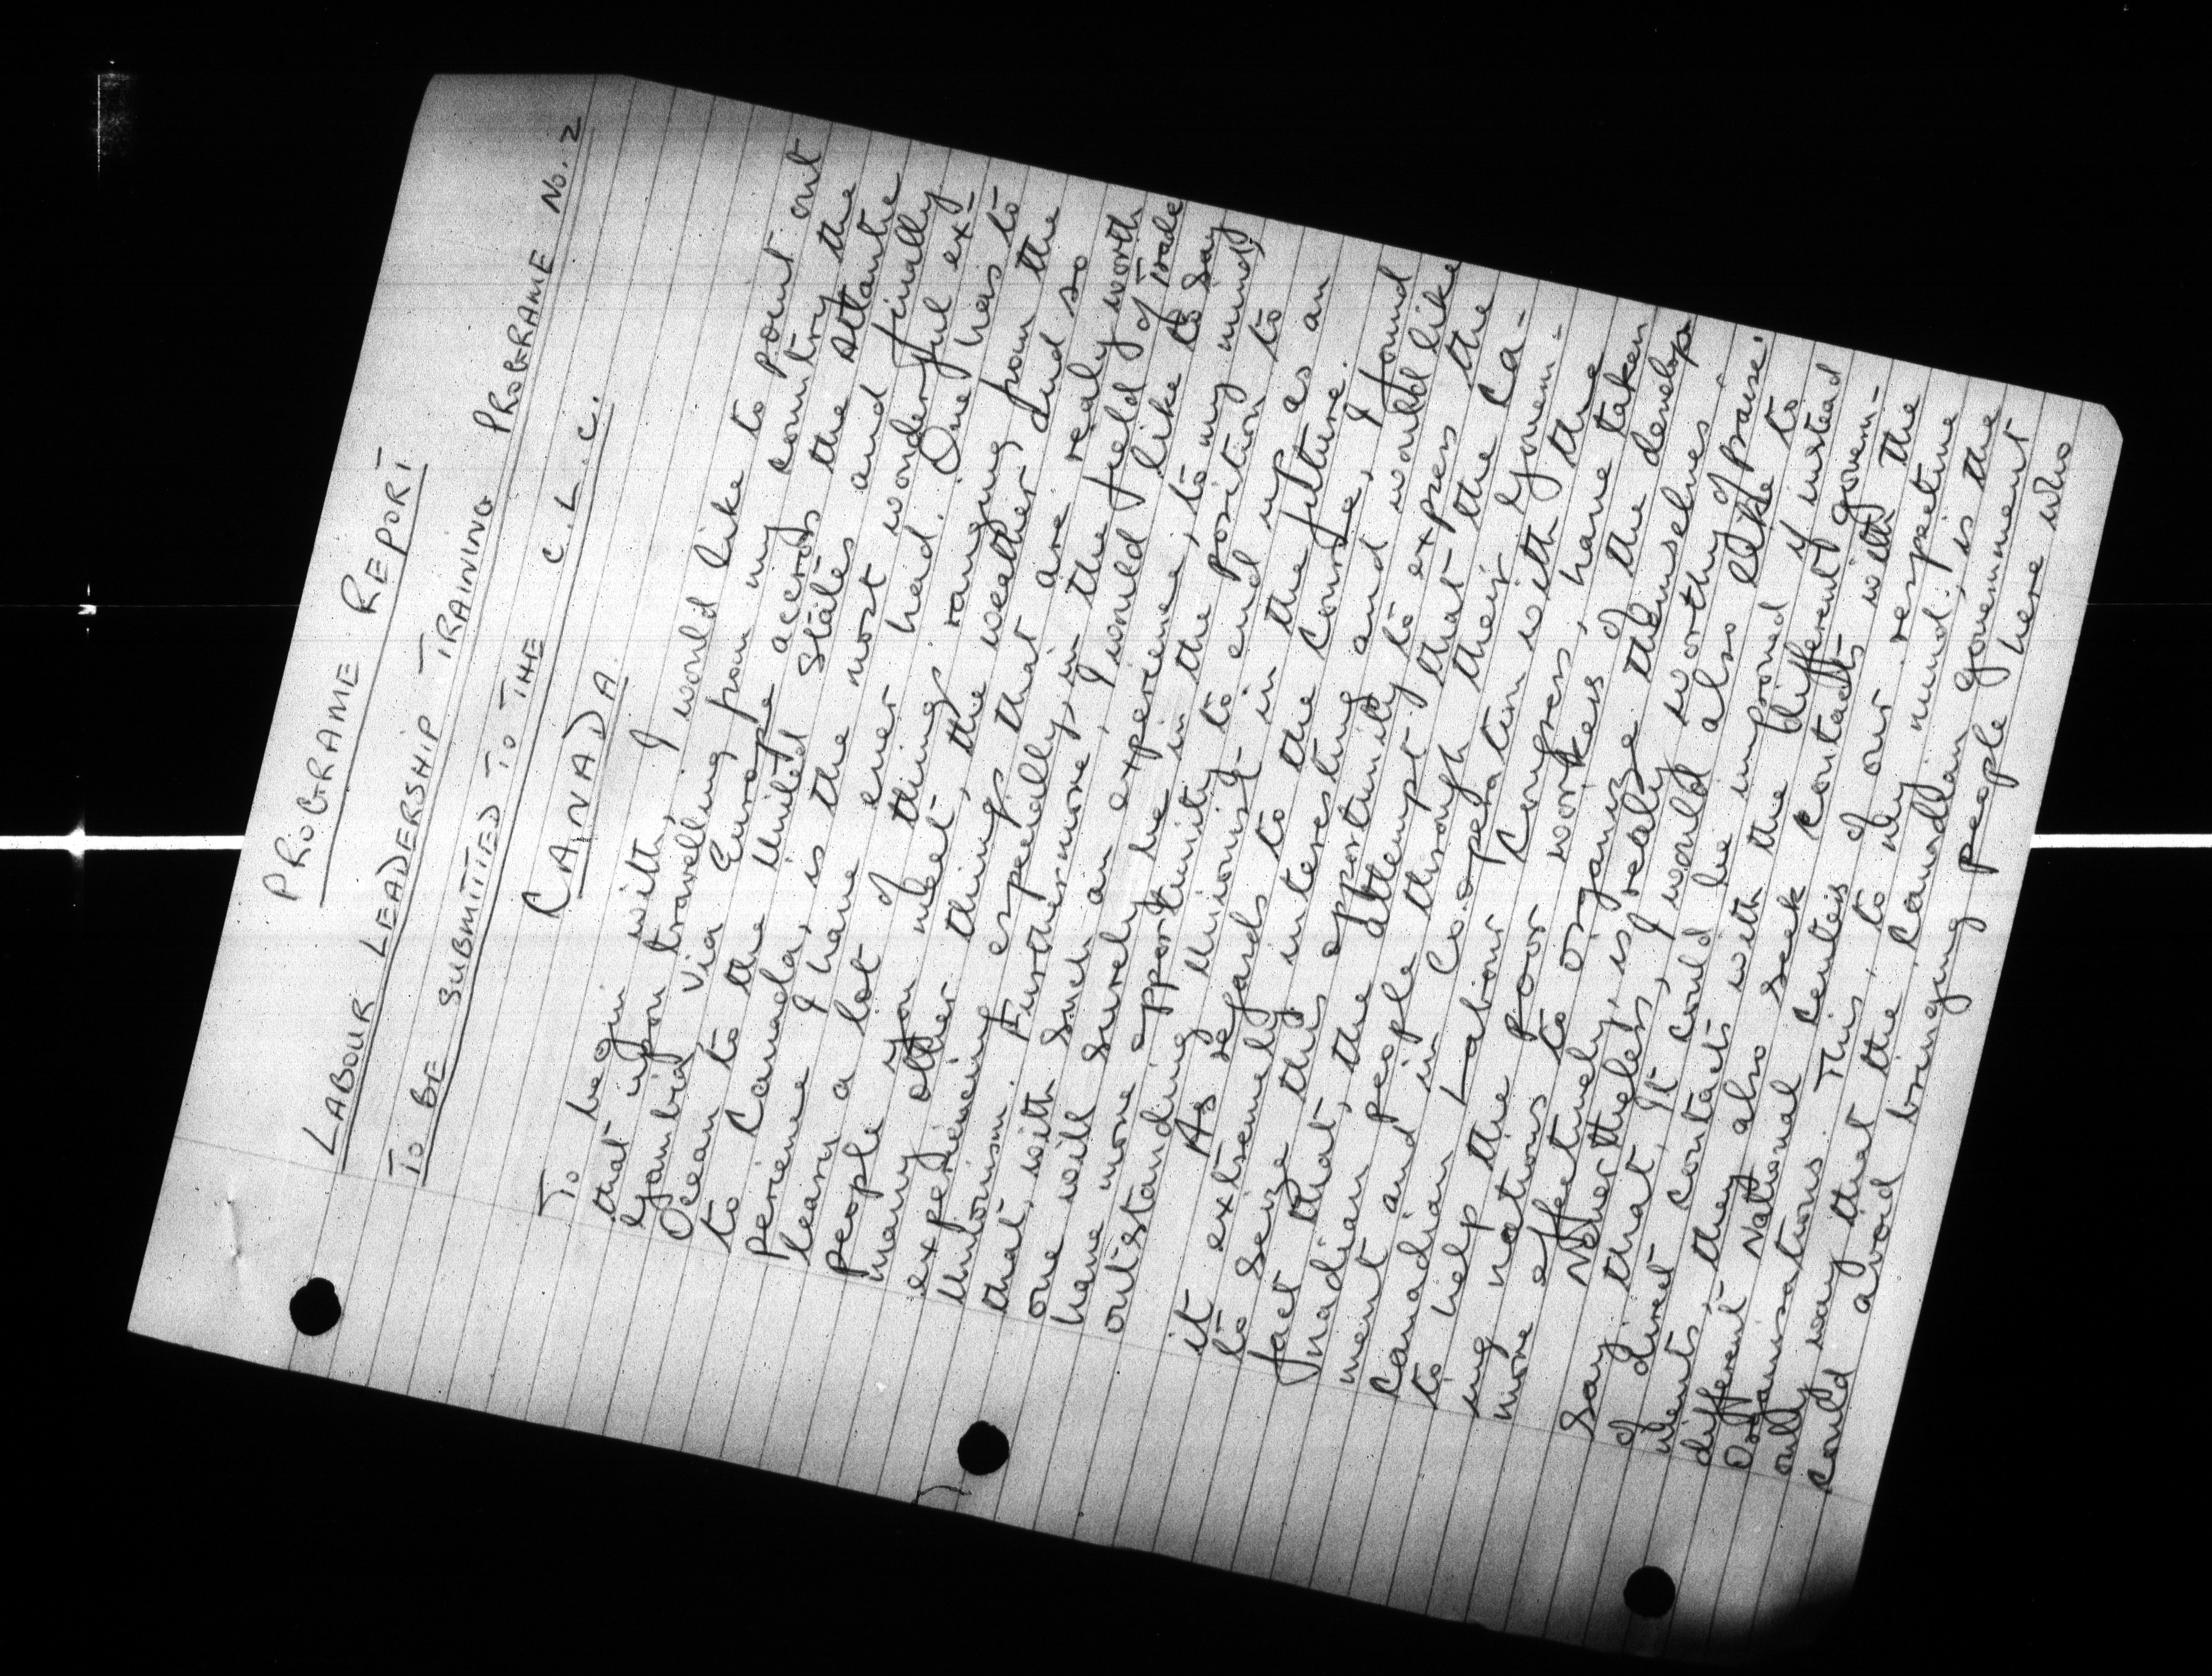 PROGRAME REPORT
LABOUR LEADERSHIP TRAINING PROGRAME No. 2
TO BE SUBMITTED TO THE C.L.C.
CANADA.
To begin with, I would like to point out
that upon travelling from my country the
Gambia, via Europe accross the Atlantic
Ocean to the United States and finally
to Canada, is the most wonderful ex-
perience I have ever had. One has to
learn a lot of things ranging from the
people you meet, the weather, and so
many other things that are realy worth
experiencing especially in the field of Trade
Unionism. Furthermore, I would like to say
that, with such an experience, to my mind,
one will surely be in the position to
have more opportunity to end up as an
outstanding Unionist in the future.
As regards to the Course, I found
it extremely interesting and would like
to seize this opportunity to express the
fact that, the attempt that the Ca-
nadian people through their Govern-
ment and in Co.operation with the
Canadian Labour Congress, have taken
to help the poor workers of the develop-
ing nations to organize themselves
more effectively, is realy worthy of praise.
Nevertheless, I would also like to
say that, it could be improved if instead
of direct contacts with the different govern-
ments, they also seek contacts with the
different National Centers of our respective
Organisations. This, to my mind, is the
only way that the Canadian government
could avoid bringing people here who